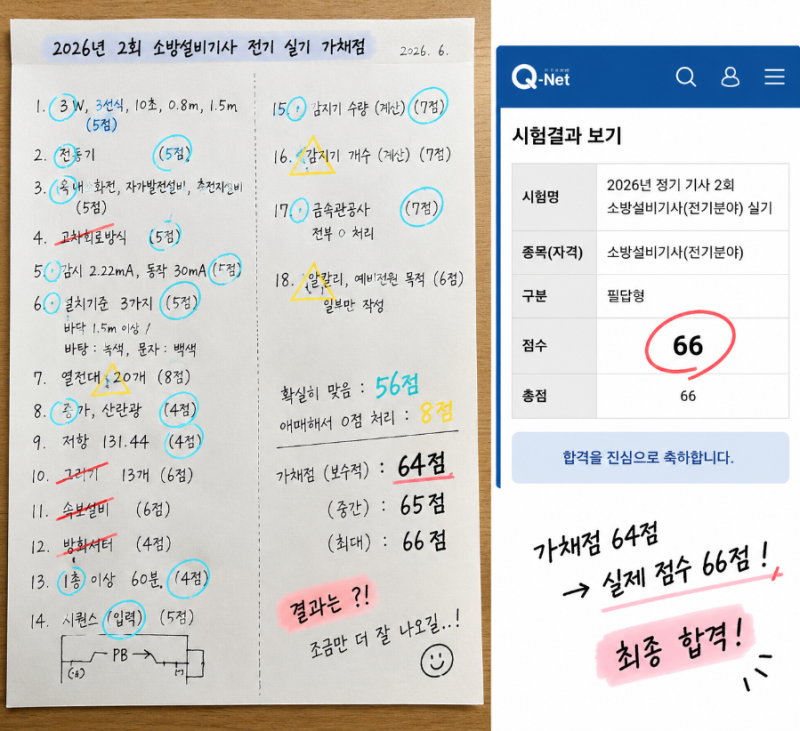 2026년 2회 소방설비기사 전기 실기 가채점
2026. 6.
1. 3W, 3선식, 10초, 0.8m, 1.5m
(5점)
2. 전동기 (5점)
3. 옥내 화전, 자가발전설비, 축전지설비
(5점)
4. 고차회로방식 (5점)
5. 감시 2.22mA, 동작 30mA (5점)
6. 설치기준 3가지 (5점)
바닥 1.5m 이상 /
바탕 : 녹색, 문자 : 백색
7. 열전대 20개 (8점)
8. 증가, 산란광 (4점)
9. 저항 131.44 (4점)
10. 그리기 13개 (6점)
11. 속보설비 (6점)
12. 방화셔터 (4점)
13. 1층 이상 60분. (4점)
14. 시퀀스 (입력) (5점)
PB
15. 감지기 수량 (계산) (7점)
16. 감지기 개수 (계산) (7점)
17. 금속관공사 (7점)
전부 0 처리
18. 알칼리, 예비전원 목적 (6점)
일부만 작성
확실히 맞음 : 56점
애매해서 0점 처리 : 8점
가채점 (보수적) : 64점
(중간) : 65점
(최대) : 66점
결과는 ?!
조금만 더 잘 나오길..!
Q-Net
시험결과 보기
시험명 2026년 정기 기사 2회
소방설비기사(전기분야) 실기
종목(자격) 소방설비기사(전기분야)
구분 필답형
점수 66
총점 66
합격을 진심으로 축하합니다.
가채점 64점
→ 실제 점수 66점 !
최종 합격!